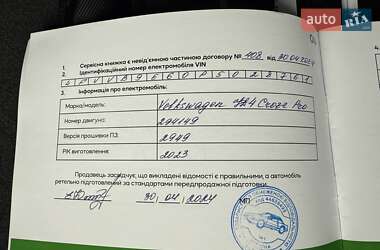 auto.RIA
1. Сервісна книжка є невід'ємною частиною договору № 408 від 30.04.2024
2. Ідентифікаційний номер електромобіля VIN
3. Інформація про електромобіль:
Марка/модель: Volkswagen ID4 Crozz Pro
Номер двигуна: 294149
Версія прошивки ПЗ: 2949
Рік виготовлення: 2023
Продавець засвідчує, що викладені відомості є правильними, а автомобіль
ретельно підготовлений за стандартами передпродажної підготовки.
30, 04, 2024 МП